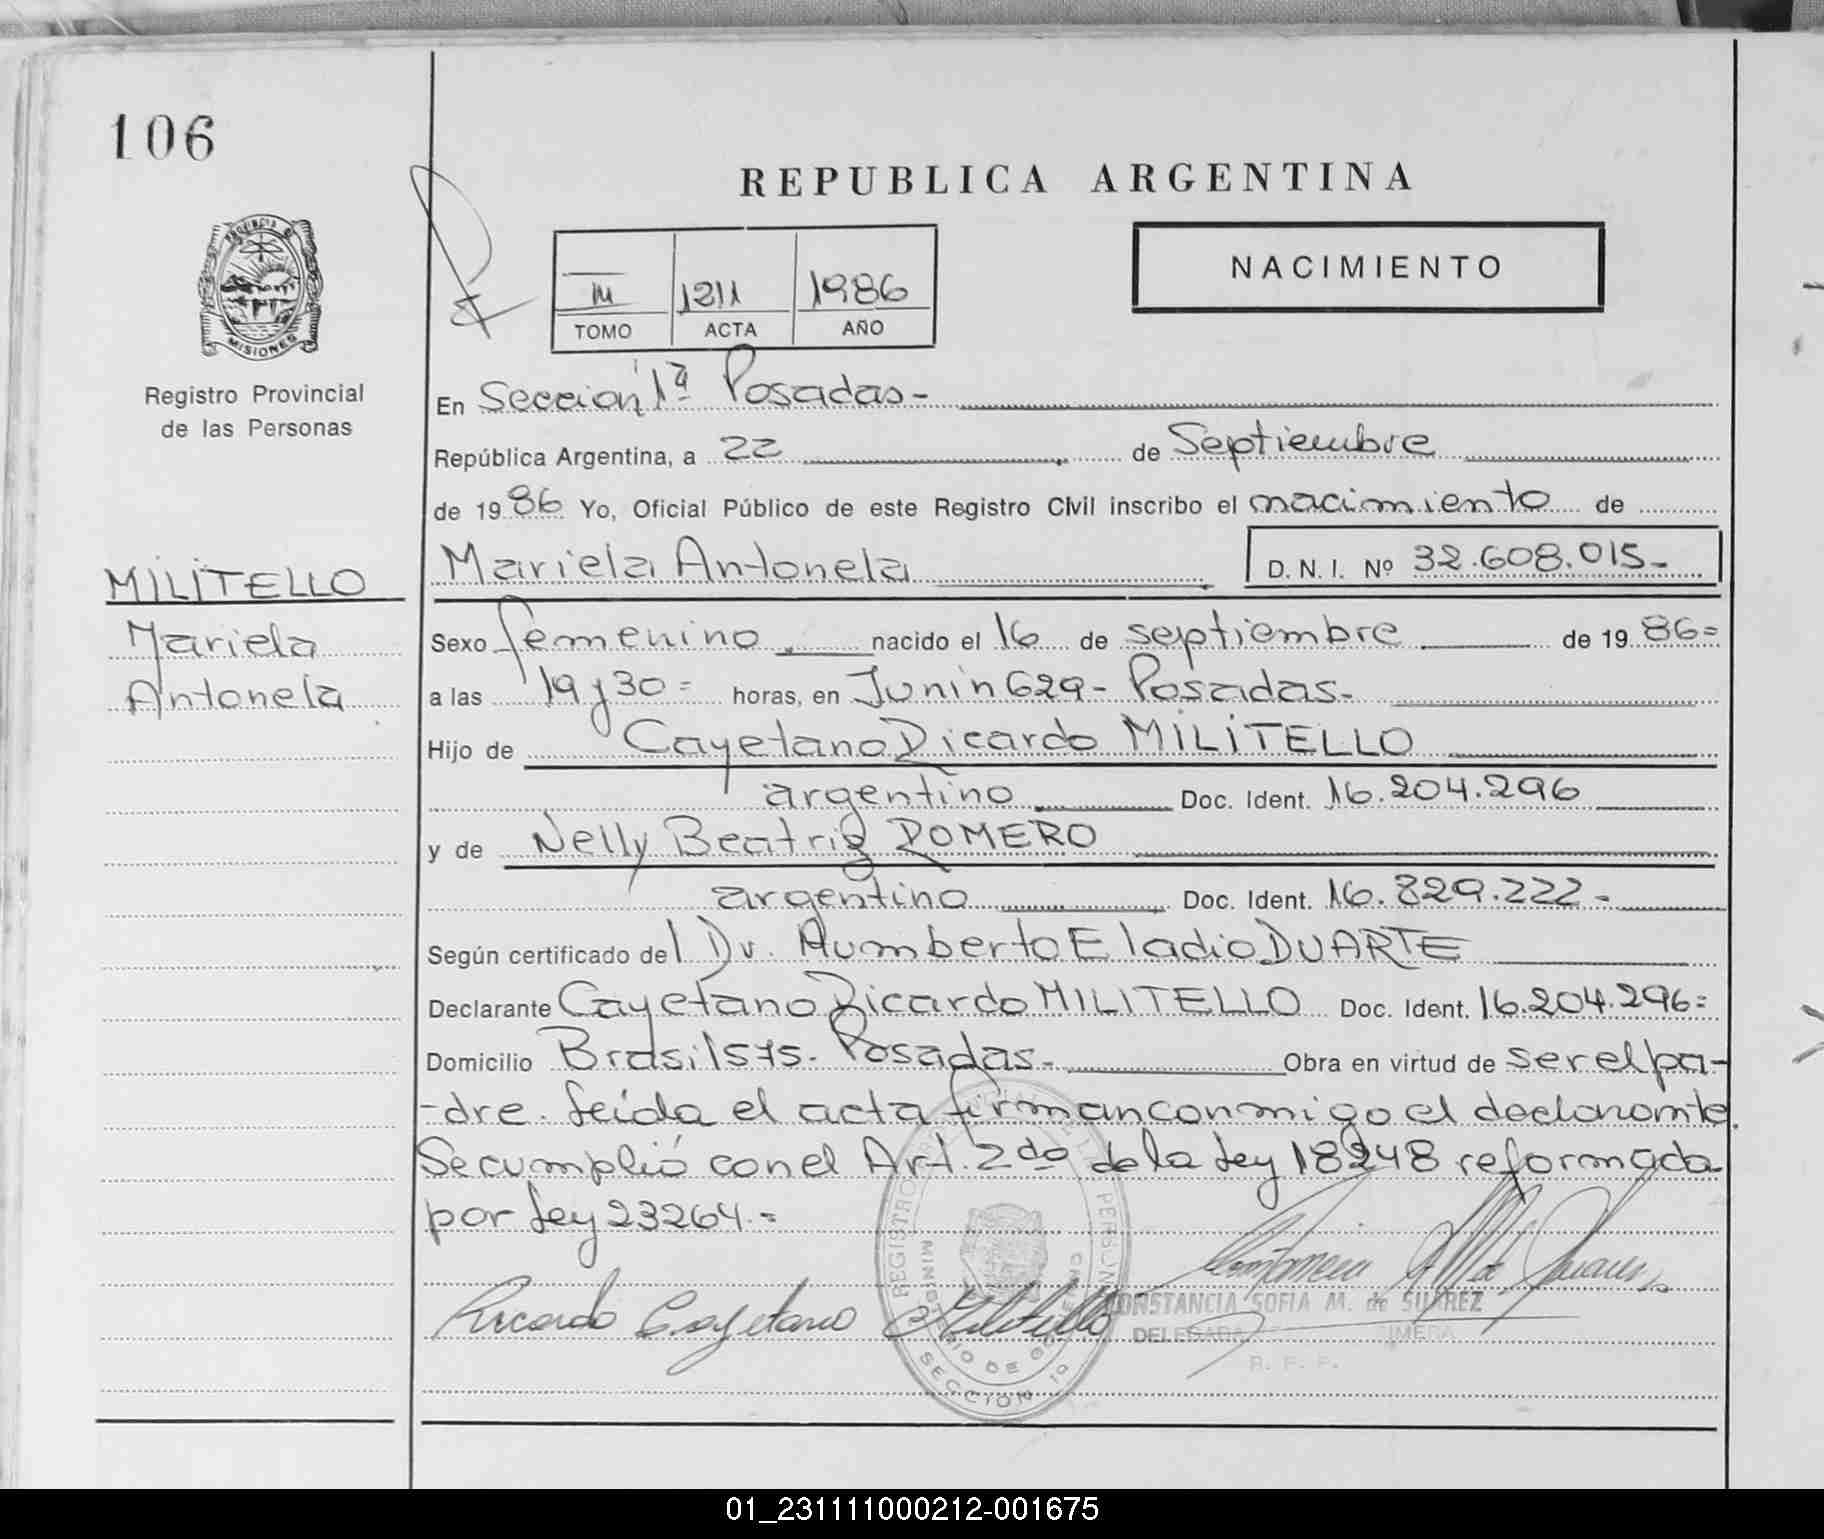 106
REPUBLICA ARGENTINA
PROVINCIA D
MISIONES
Registro Provincial
de las Personas
III 1211 1986
TOMO ACTA AÑO
NACIMIENTO
En Seccion 1ª Posadas-
República Argentina, a 22 de Septiembre
de 1986 Yo, Oficial Público de este Registro Civil inscribo el nacimiento de
Mariela Antonela D. N. I. Nº 32.608.015-
MILITELLO
Mariela
Antonela
Sexo femenino nacido el 16 de septiembre de 1986=
a las 19 y 30= horas, en Junin 629- Posadas-
Hijo de Cayetano Ricardo MILITELLO
argentino Doc. Ident. 16.204.296
y de Nelly Beatriz ROMERO
argentino Doc. Ident. 16.829.222-
Según certificado del Dr. Humberto Eladio DUARTE
Declarante Cayetano Ricardo MILITELLO Doc. Ident. 16.204.296=
Domicilio Brasil 575- Posadas- Obra en virtud de ser el pa-
-dre. Leida el acta firman conmigo el declarante.
Se cumplió con el Art. 2do de la Ley 18248 reformada
por Ley 23264.=
Ricardo Cayetano Militello
CONSTANCIA SOFIA M. de SUAREZ
DELEGADA
R. P. P.
SECCION 1º
01_231111000212-001675